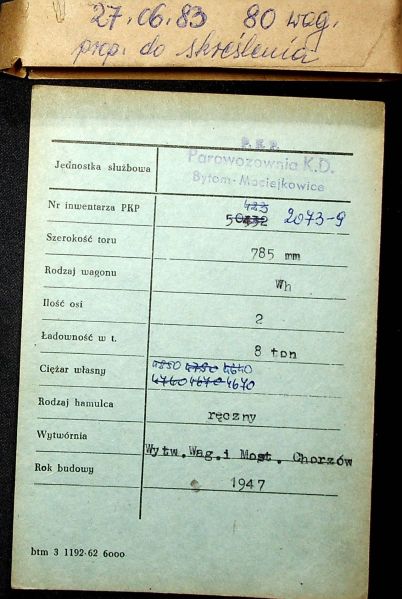 27.06.83 80 wag.
prop. do skreślenia
P.K.P.
Jednostka służbowa Parowozownia K.D.
Bytom-Maciejkowice
423
Nr inwentarza PKP 50432 2073-9
Szerokość toru 785 mm
Rodzaj wagonu Wh
Ilość osi 2
Ładowność w t. 8 ton
Ciężar własny 4850 4750 4640
4760 4670 4670
Rodzaj hamulca ręczny
Wytwórnia Wytw.Wag.i Most. Chorzów
Rok budowy 1947
btm 3 1192-62 6000